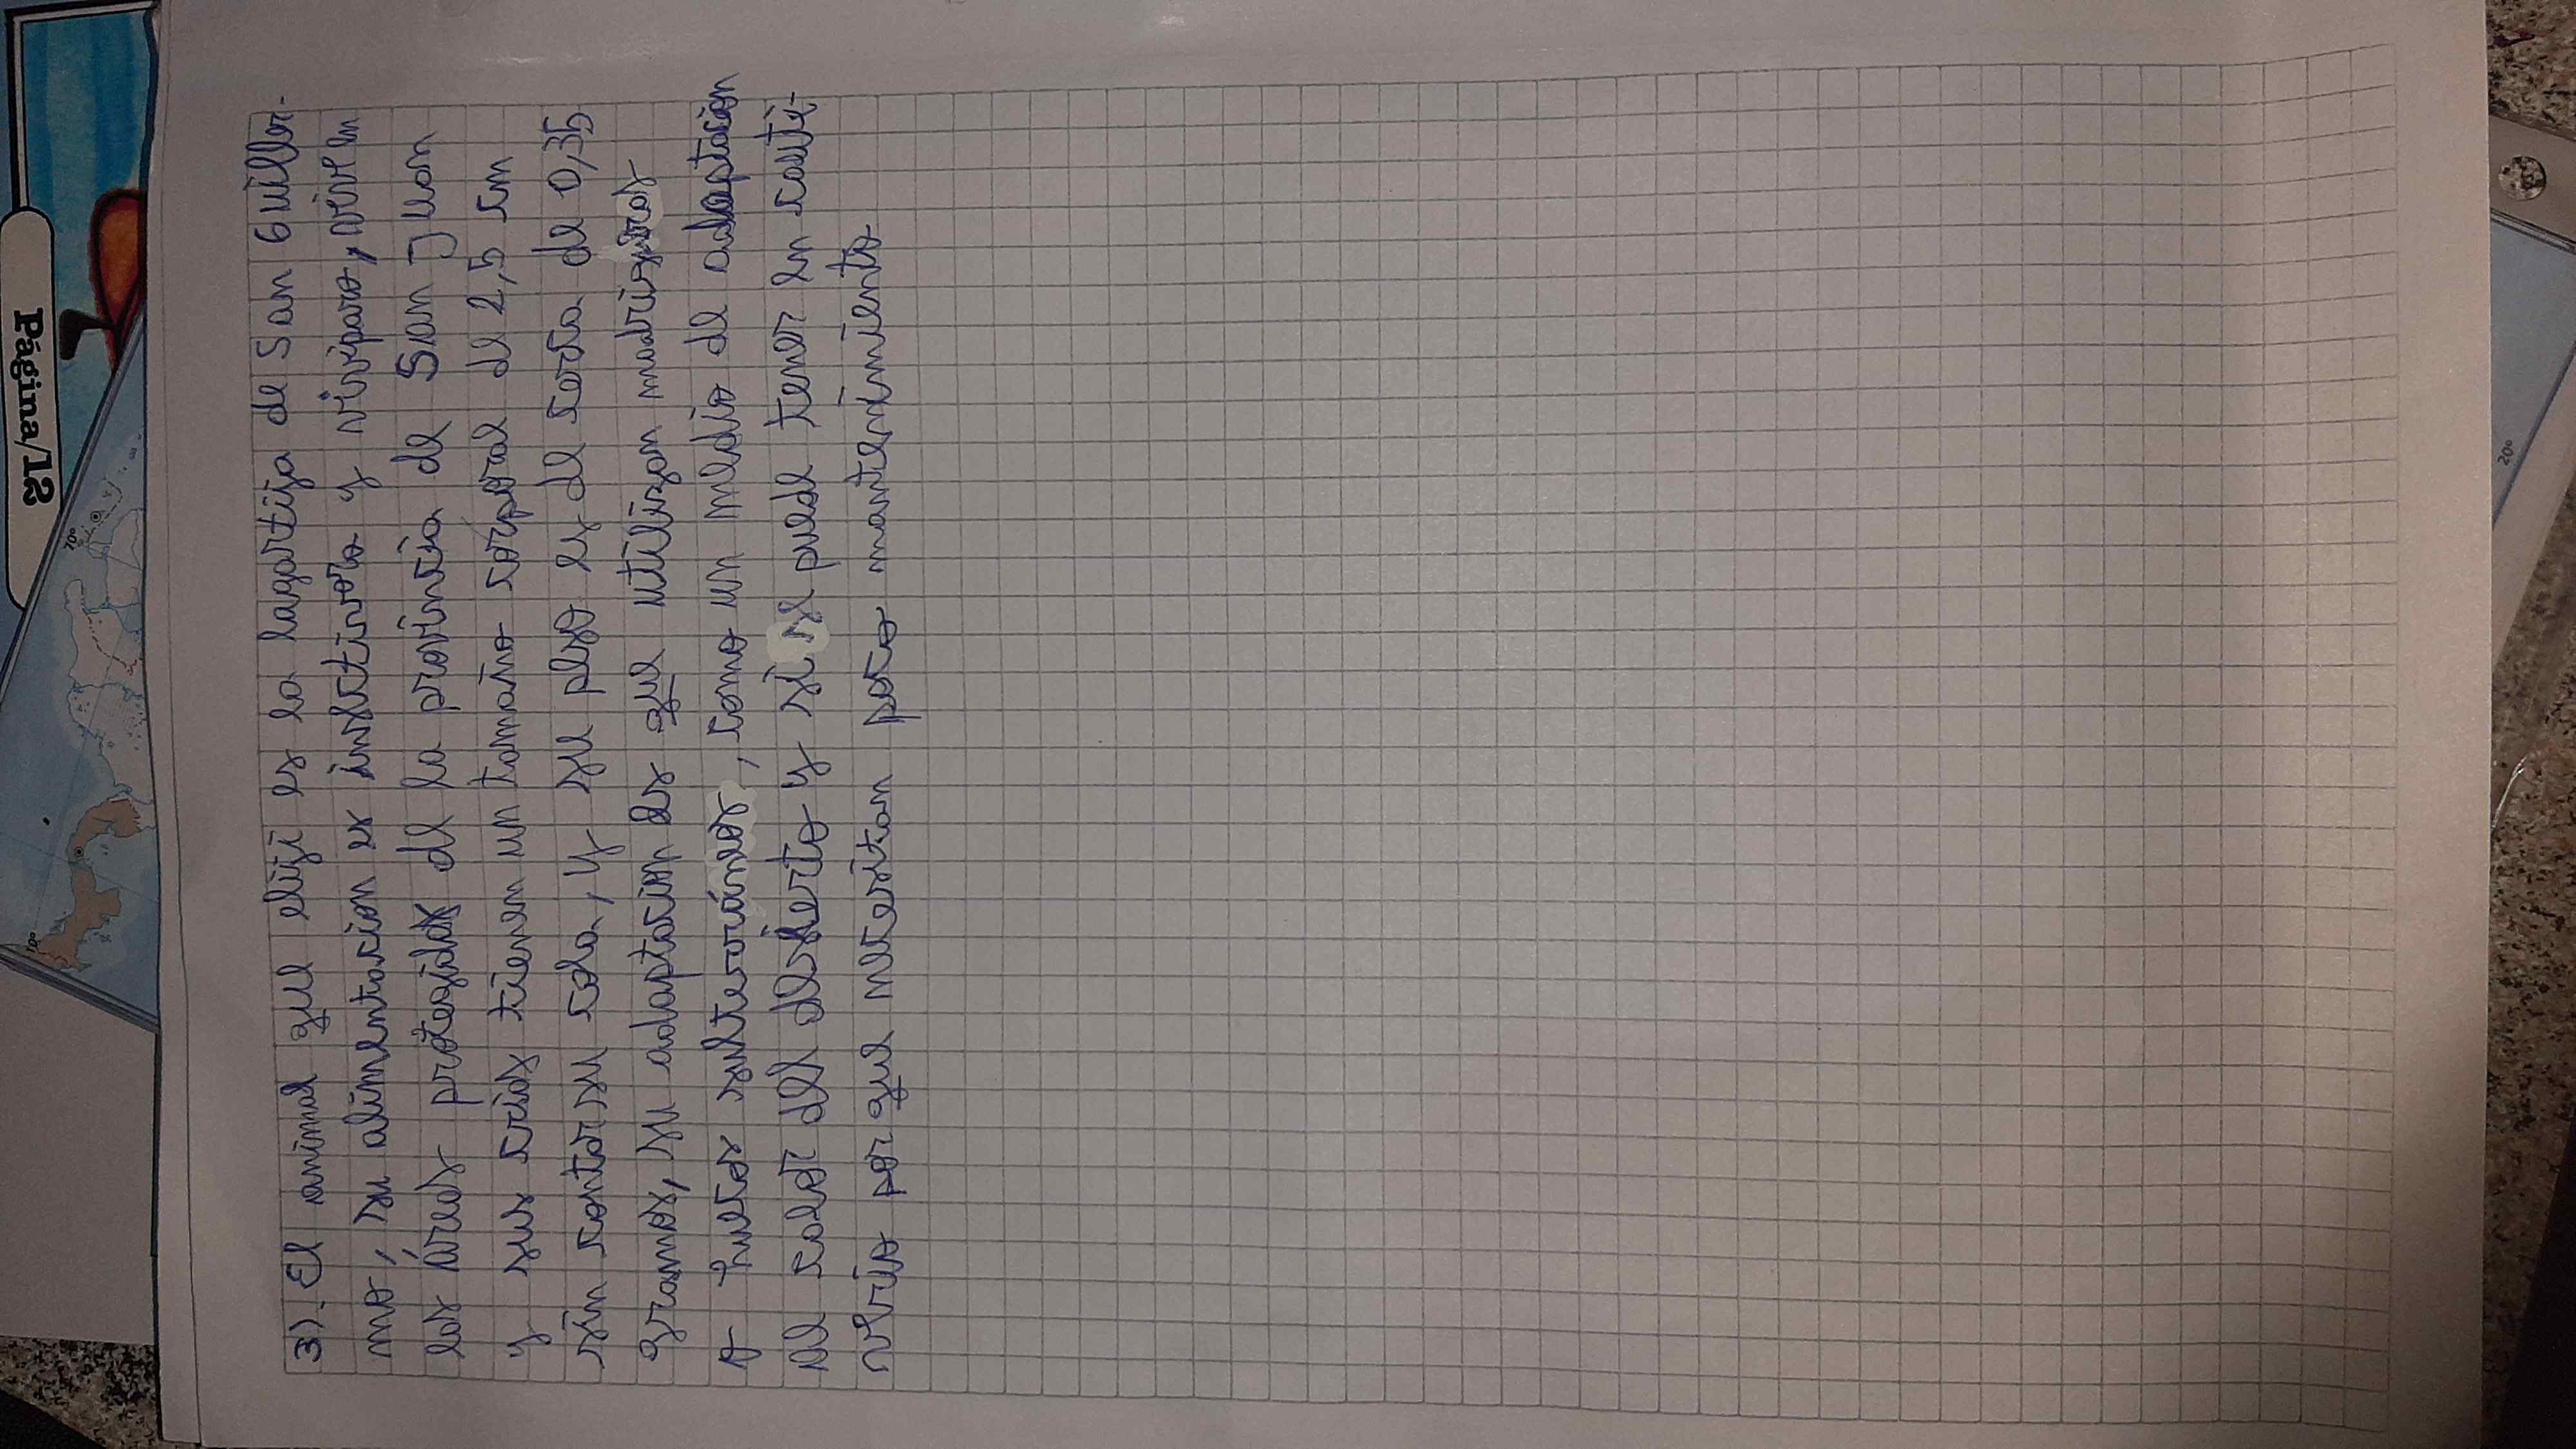 3). El animal que elijí es la lagartija de San Guiller-
mo, su alimentacion es insectivoro y viviparo, vive en
las áreas protegidas de la provincia de San Juan
y sus crias tienen un tamaño corporal de 2,5 cm
sin contar su cola, y su peso es de cerca de 0,35
gramos, su adaptacion es que utilizan madrigueras
o huecos subterráneos, como un medio de adaptación
al calor del desierto y si se puede tener en cauti-
verio por que necesitan poco mantenimiento
Página/12
70°
10°
20°